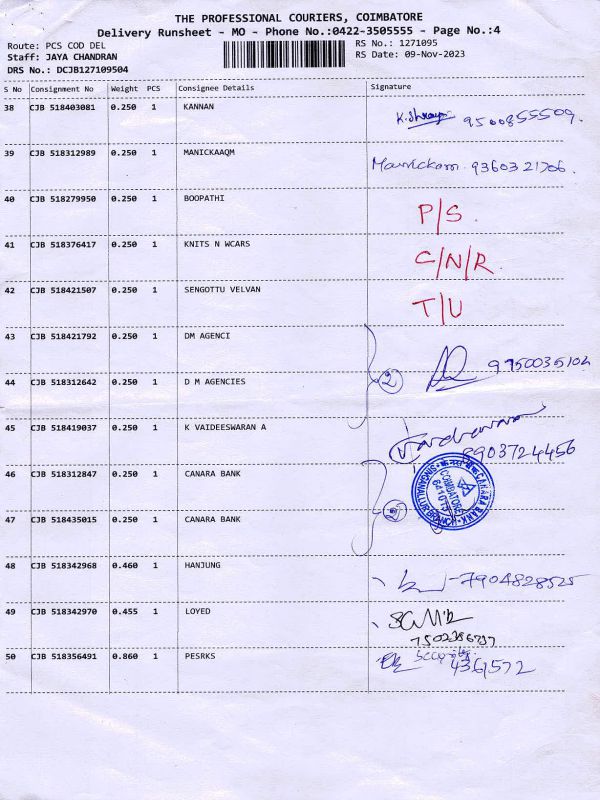 THE PROFESSIONAL COURIERS, COIMBATORE
Delivery Runsheet - MO - Phone No.:0422-3505555 - Page No.:4
Route: PCS COD DEL RS No.: 1271095
Staff: JAYA CHANDRAN RS Date: 09-Nov-2023
DRS No.: DCJB127109504
S No Consignment No Weight PCS Consignee Details Signature
38 CJB 518403081 0.250 1 KANNAN 9500855509.
39 CJB 518312989 0.250 1 MANICKAAQM Manickam 9360321706.
40 CJB 518279950 0.250 1 BOOPATHI P/S.
41 CJB 518376417 0.250 1 KNITS N WCARS C/N/R.
42 CJB 518421507 0.250 1 SENGOTTU VELVAN T/U
43 CJB 518421792 0.250 1 DM AGENCI 9750035102
44 CJB 518312642 0.250 1 D M AGENCIES 2
45 CJB 518419037 0.250 1 K VAIDEESWARAN A 8903724456
46 CJB 518312847 0.250 1 CANARA BANK
CANARA BANK
SINGANALLUR BRANCH
COIMBATORE
641015
47 CJB 518435015 0.250 1 CANARA BANK
48 CJB 518342968 0.460 1 HANJUNG 7904828525
49 CJB 518342970 0.455 1 LOYED
50 CJB 518356491 0.860 1 PESRKS 4361572